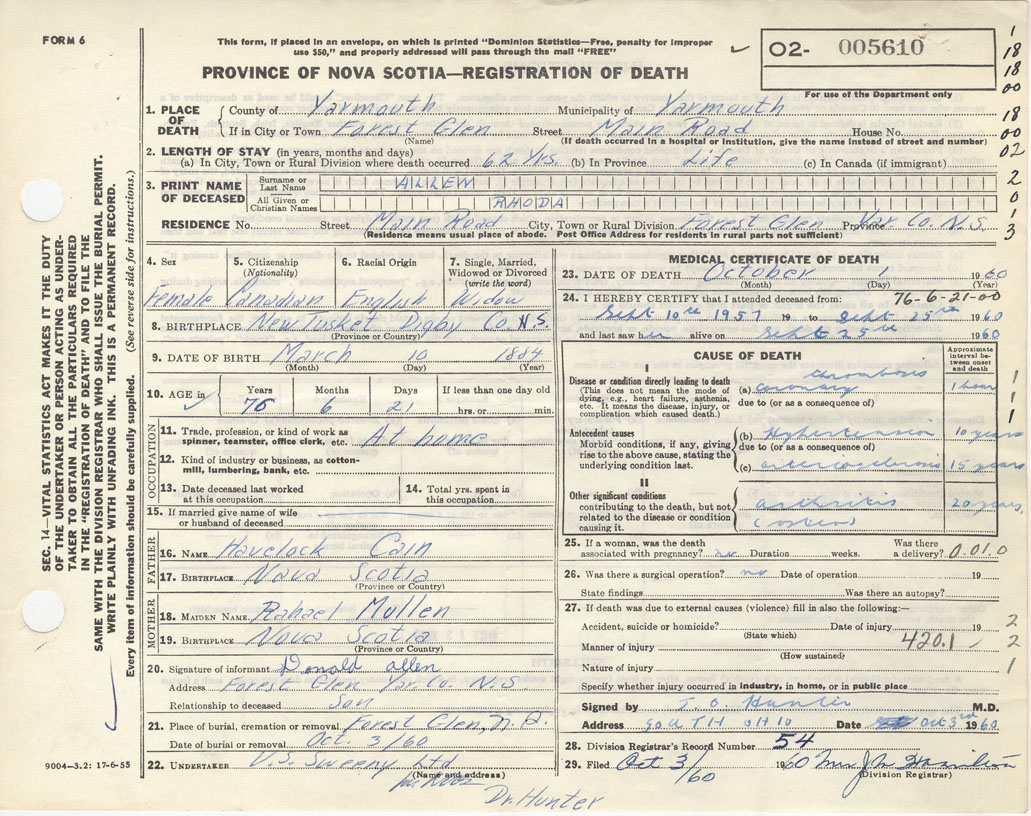 FORM 6
This form, if placed in an envelope, on which is printed "Dominion Statistics—Free, penalty for improper
use $50," and properly addressed will pass through the mail "FREE"
PROVINCE OF NOVA SCOTIA—REGISTRATION OF DEATH
O2- 005610
For use of the Department only
1
18
18
00
18
00
02
2
0
1
3
1. PLACE OF DEATH County of Yarmouth Municipality of Yarmouth
If in City or Town Forest Glen Street Main Road House No.
(Name) (If death occurred in a hospital or Institution, give the name instead of street and number)
2. LENGTH OF STAY (in years, months and days)
(a) In City, Town or Rural Division where death occurred 62 Yrs. (b) In Province Life (c) In Canada (if immigrant)
3. PRINT NAME OF DECEASED Surname or Last Name ALLEN
All Given or Christian Names RHODA
RESIDENCE No. Street Main Road City, Town or Rural Division Forest Glen Province Yar. Co. N.S.
(Residence means usual place of abode. Post Office Address for residents in rural parts not sufficient)
4. Sex Female
5. Citizenship (Nationality) Canadian
6. Racial Origin English
7. Single, Married, Widowed or Divorced (write the word) Widow
8. BIRTHPLACE New Tusket Digby Co. N.S.
(Province or Country)
9. DATE OF BIRTH March 10 1884
(Month) (Day) (Year)
10. AGE in Years 76 Months 6 Days 21 If less than one day old hrs. or min.
OCCUPATION
11. Trade, profession, or kind of work as spinner, teamster, office clerk, etc. At home
12. Kind of industry or business, as cotton-mill, lumbering, bank, etc.
13. Date deceased last worked at this occupation
14. Total yrs. spent in this occupation
15. If married give name of wife or husband of deceased
FATHER
16. NAME Havelock Cain
17. BIRTHPLACE Nova Scotia
(Province or Country)
MOTHER
18. MAIDEN NAME Rahael Mullen
19. BIRTHPLACE Nova Scotia
(Province or Country)
20. Signature of informant Donald Allen
Address Forest Glen Yar. Co. N.S.
Relationship to deceased Son
21. Place of burial, cremation or removal Forest Glen,
Date of burial or removal Oct. 3/60
22. UNDERTAKER V.S. Sweeny Ltd
(Name and address)
Dr. Hunter
MEDICAL CERTIFICATE OF DEATH
23. DATE OF DEATH October 1 1960
(Month) (Day) (Year)
24. I HEREBY CERTIFY that I attended deceased from: 76-6-21-00
Sept 10th 1957 19 to Sept 25th 1960
and last saw her alive on Sept 25th 1960
CAUSE OF DEATH
Approximate interval between onset and death
I
Disease or condition directly leading to death
(This does not mean the mode of dying, e.g., heart failure, asthenia, etc. It means the disease, injury, or complication which caused death.)
(a) coronary thrombosis 1 hour
due to (or as a consequence of)
Antecedent causes
Morbid conditions, if any, giving rise to the above cause, stating the underlying condition last.
(b) Hypertension 10 years
due to (or as a consequence of)
(c) arteriosclerosis 15 years
II
Other significant conditions contributing to the death, but not related to the disease or condition causing it.
arthritis 20 years,
1
1
25. If a woman, was the death associated with pregnancy? no Duration weeks. Was there a delivery? 0.01.0
26. Was there a surgical operation? no Date of operation 19
State findings Was there an autopsy?
27. If death was due to external causes (violence) fill in also the following:—
Accident, suicide or homicide? Date of injury 19
(State which)
Manner of injury 420.1
(How sustained)
Nature of injury
Specify whether injury occurred in industry, in home, or in public place
2
2
1
Signed by T. O. Hunter M.D.
Address Date Oct 3rd 1960
28. Division Registrar's Record Number 54
29. Filed Oct 3/60 1960 Mrs J M Hamilton
(Division Registrar)
SEC. 14—VITAL STATISTICS ACT MAKES IT THE DUTY
OF THE UNDERTAKER OR PERSON ACTING AS UNDER-
TAKER TO OBTAIN ALL THE PARTICULARS REQUIRED
IN THE "REGISTRATION OF DEATH" AND TO FILE THE
SAME WITH THE DIVISION REGISTRAR WHO SHALL ISSUE THE BURIAL PERMIT.
WRITE PLAINLY WITH UNFADING INK. THIS IS A PERMANENT RECORD.
Every item of information should be carefully supplied. (See reverse side for instructions.)
9004—3.2: 17-6-55